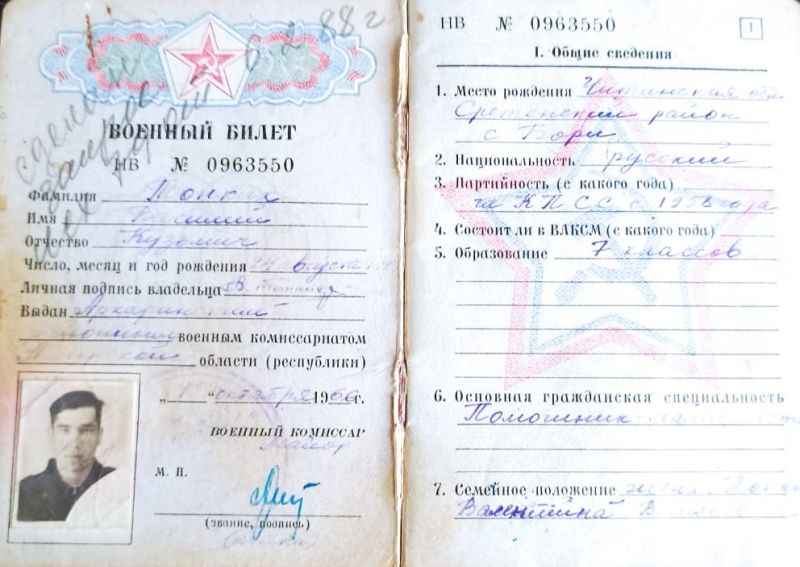 ВОЕННЫЙ БИЛЕТ
НВ № 0963550
Фамилия Тонких
Имя Василий
Отчество Кузьмич
Число, месяц и год рождения августа
Личная подпись владельца
Выдан Архаринский
районным военным комиссариатом
Амурской области (республики)
„ “ октября 1966 г.
ВОЕННЫЙ КОМИССАР
майор
М. П.
(звание, подпись)
НВ № 0963550
1
I. Общие сведения
1. Место рождения Читинская обл
Сретенский район
с Боры
2. Национальность русский
3. Партийность (с какого года)
чл КПСС с 1958 года
4. Состоит ли в ВЛКСМ (с какого года)
5. Образование 7 классов
6. Основная гражданская специальность
Помошник
7. Семейное положение жена
Валентина